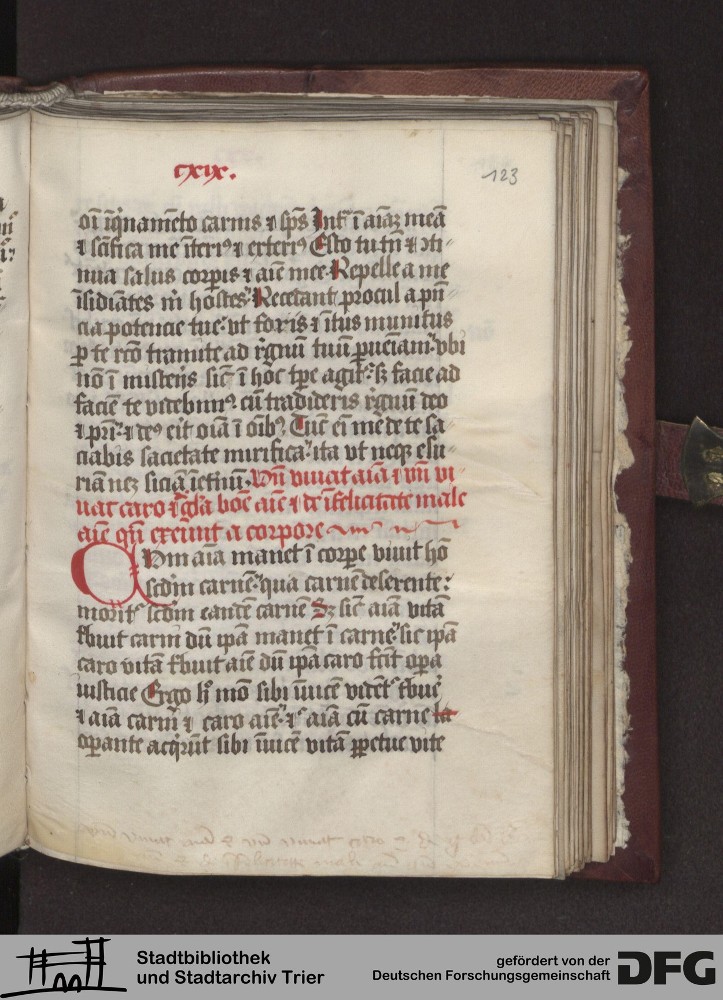 cxix.
123
oī īq̄namēto carnis ⁊ sp̄s Int͛ ī aīaȝ meā
⁊ sc̄ifica me īteri⁹ ⁊ exteri⁹ Esto tu tn̄ ⁊ ꝯti-
nua salus corpis ⁊ aīe mee Repelle a me
īsidiātes m̄ hostes Recedant procul a p̄n
cia potencie tue vt foris ⁊ ītus munitus
ꝑ te rc̄o tramite ad r̄gnū tuū ꝑueiam vbi
nō ī misterijs sic̄ ī hoc tp̄e agit͛ sȝ facie ad
faciē te videbim⁹ cū tradideris r̄gnū deo
⁊ pr̄i ⁊ de⁹ erit oīa ī oīb⁹ Tūc eī me de te sa
ciabis sacietate mirifica ita vt neqȝ esu-
riā necȝ siciā īet̄nū Vn̄ viuat aīa ⁊ vn̄ vi-
uat caro ⁊ gl̄a boē aīe ⁊ de īfelicitate male
aīe qn̄ exeunt a corpore
Q Vm aīa manet ī corpe viuit hō
scd̄m carnē qua carnē deserente
morit͛ scd̄m eandē carnē Sȝ sic̄ aīa vitā
t͛buit carni dū ip̄a manet ī carne sic ip̄a
caro vitā t͛buit aīe dū ip̄a caro fec̄it oꝑa
iusticie Ergo h̄ mō sibi īuicē vidēt͛ t͛bue͛
⁊ aīa carni ⁊ caro aīe ⁊ aīa cū carne la
oꝑante acq̄rūt sibi īuicē vitā ꝑpetue vite
Stadtbibliothek
und Stadtarchiv Trier
gefördert von der
Deutschen Forschungsgemeinschaft
DFG